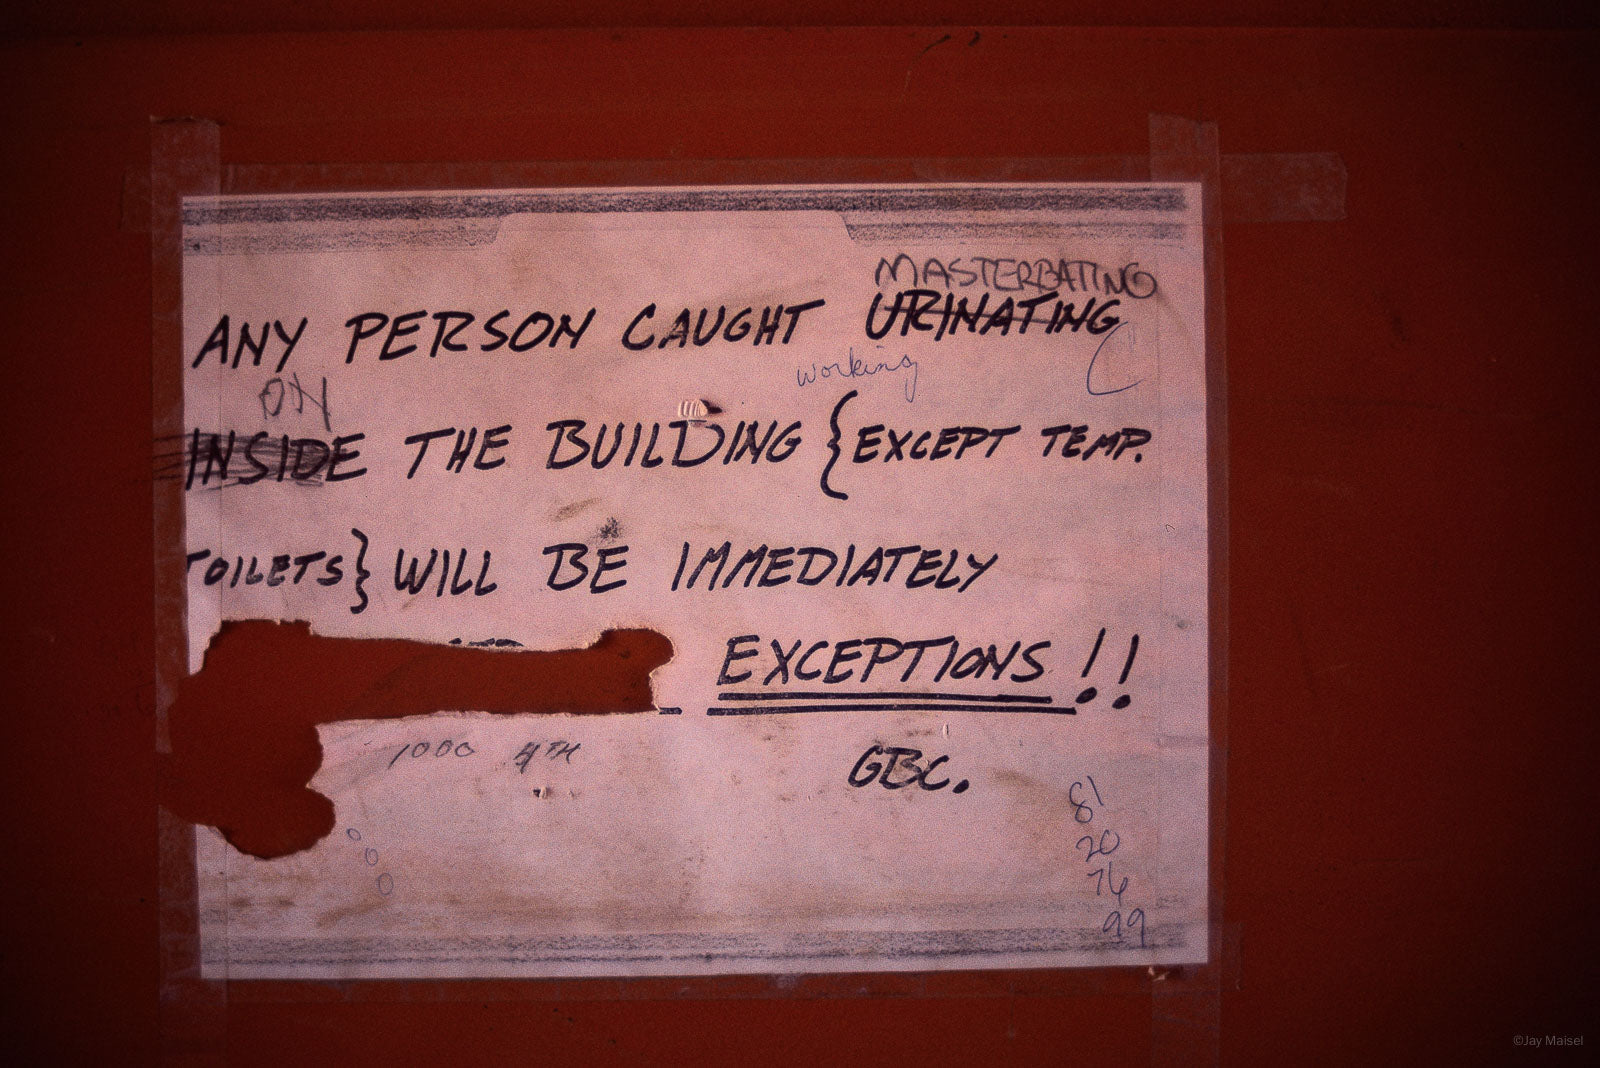 MASTERBATING
ANY PERSON CAUGHT URINATING
working
ON
INSIDE THE BUILDING {EXCEPT TEMP.
TOILETS} WILL BE IMMEDIATELY
EXCEPTIONS!!
1000 4TH
GBC.
81
20
76
99
©Jay Maisel